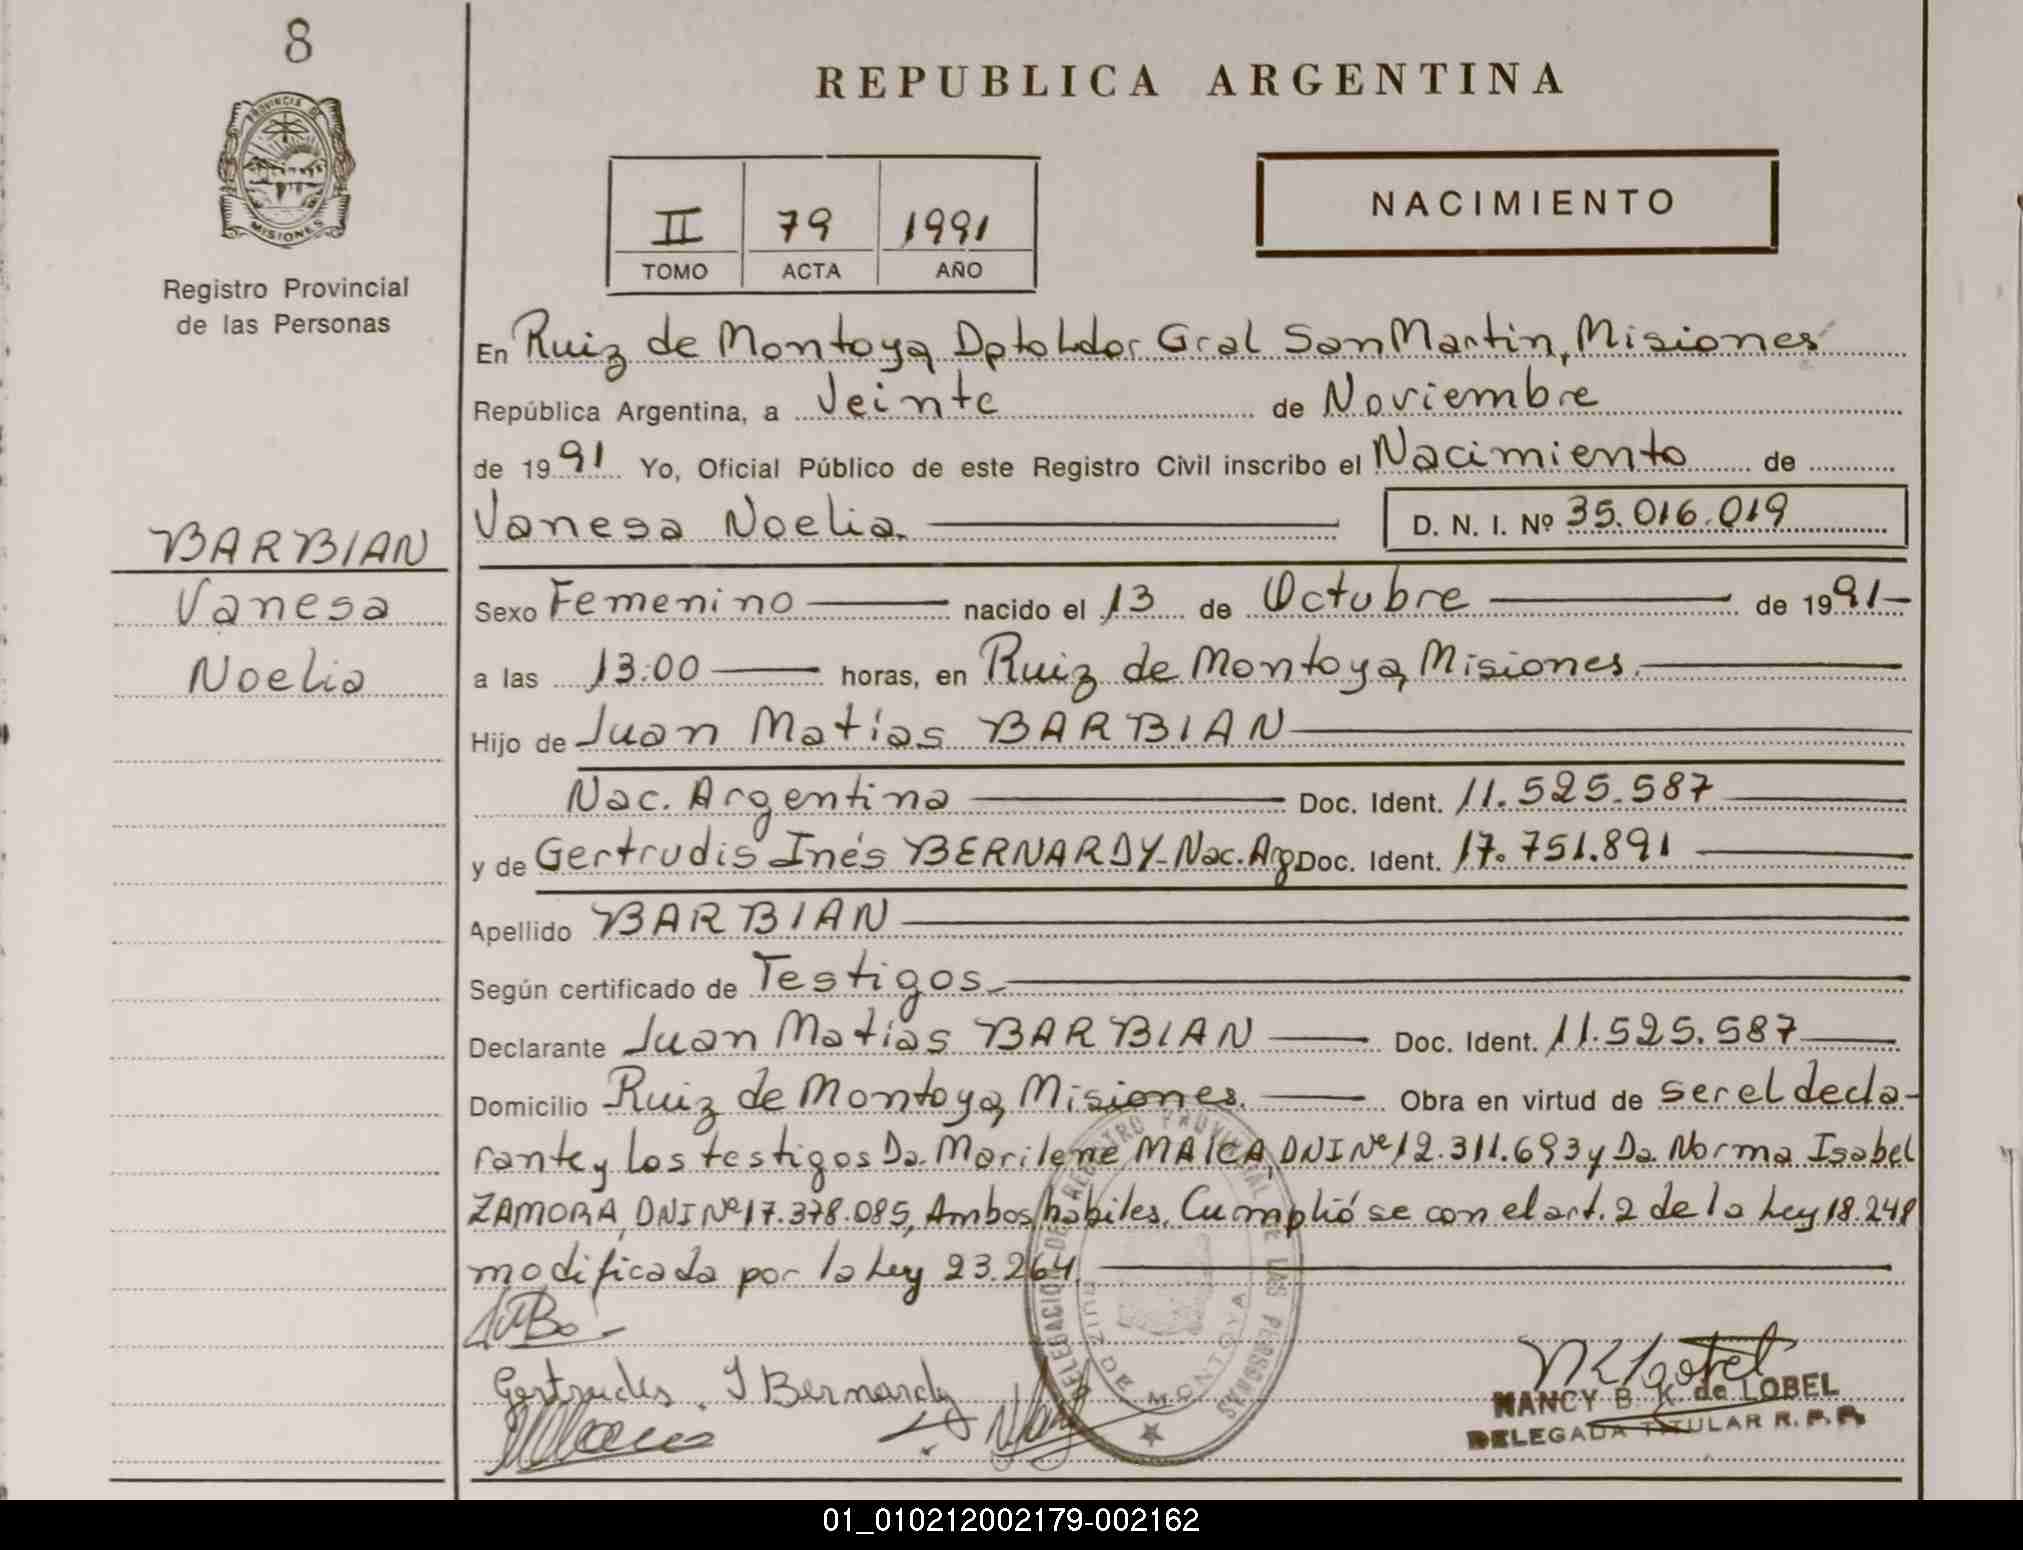 8
PROVINCIA DE
MISIONES
Registro Provincial
de las Personas
BARBIAN
Vanesa
Noelia
REPUBLICA ARGENTINA
II 79 1991
TOMO ACTA AÑO
NACIMIENTO
En Ruiz de Montoya, Dpto Ldor Gral San Martin, Misiones
República Argentina, a Veinte de Noviembre
de 1991 Yo, Oficial Público de este Registro Civil inscribo el Nacimiento de
Vanesa Noelia. D. N. I. Nº 35.016.019
Sexo Femenino nacido el 13 de Octubre de 1991-
a las 13:00 horas, en Ruiz de Montoya, Misiones.
Hijo de Juan Matías BARBIAN
Nac. Argentina Doc. Ident. 11.525.587
y de Gertrudis Inés BERNARDY- Nac. Arg Doc. Ident. 17.751.891
Apellido BARBIAN
Según certificado de Testigos
Declarante Juan Matías BARBIAN Doc. Ident. 11.525.587
Domicilio Ruiz de Montoya, Misiones. Obra en virtud de ser el decla-
rante y los testigos Da. Marilene MAICA, DNI Nº 12.311.693 y Da. Norma Isabel
ZAMORA, DNI Nº 17.378.085, Ambos habiles. Cumplióse con el art. 2 de la Ley 18.248
modificada por la Ley 23.264.
Gertrudis I Bernardy
DELEGACION DE REGISTRO PROVINCIAL DE LAS PERSONAS
RUIZ DE MONTOYA
NANCY B. K. de LOBEL
DELEGADA TITULAR R. P. P.
01_010212002179-002162